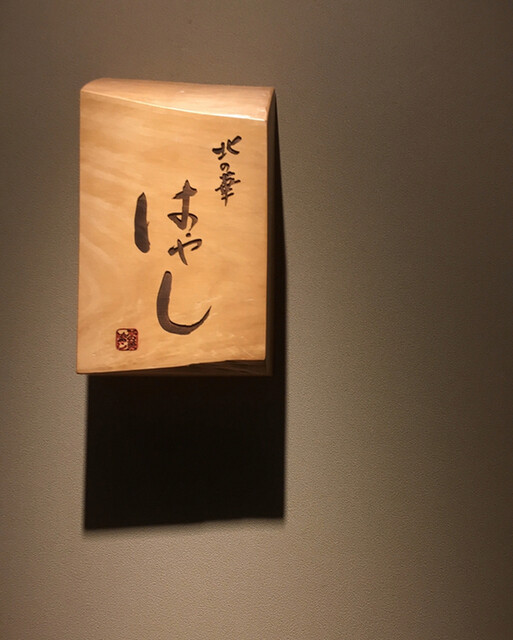 北の華
はやし